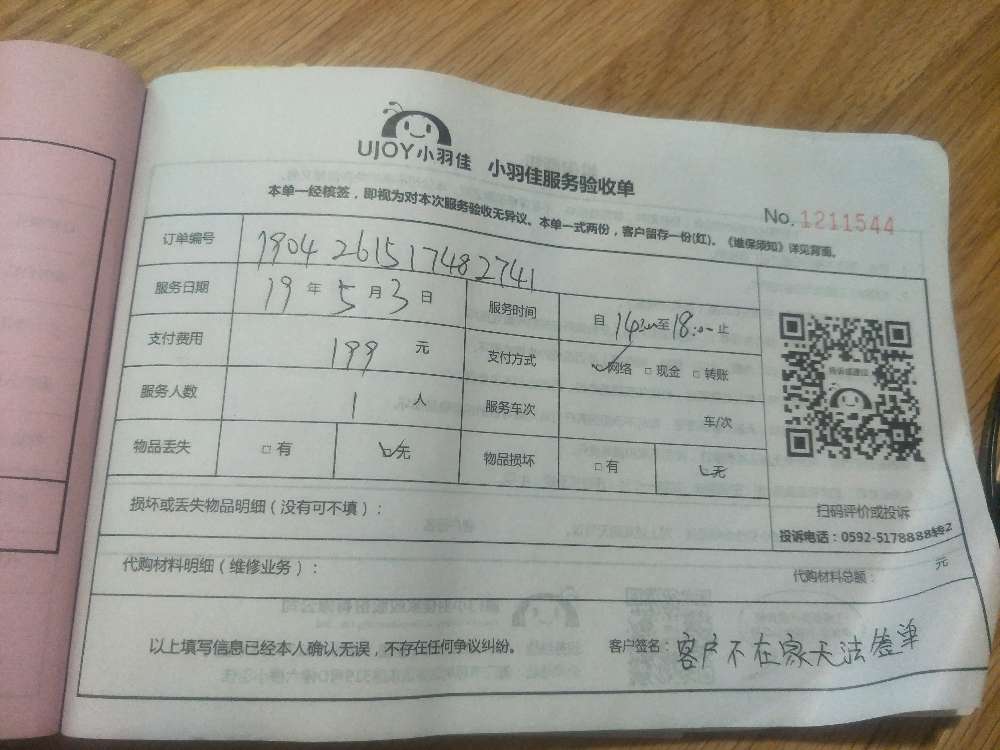 UJOY小羽佳 小羽佳服务验收单
本单一经核签，即视为对本次服务验收无异议。本单一式两份，客户留存一份(红)。《维保须知》详见背面。
No. 1211544
订单编号 19042615174827​41
服务日期 19 年 5 月 3 日 服务时间 自 14:00 至 18:00 止
支付费用 199 元 支付方式 网络 □ 现金 □ 转账
服务人数 1 人 服务车次 车/次
物品丢失 □ 有 无 物品损坏 □ 有 无
扫码评价或投诉
投诉电话：0592-5178888转2
损坏或丢失物品明细（没有可不填）：
代购材料明细（维修业务）： 代购材料总额： 元
以上填写信息已经本人确认无误，不存在任何争议纠纷。 客户签名：客户不在家无法签单